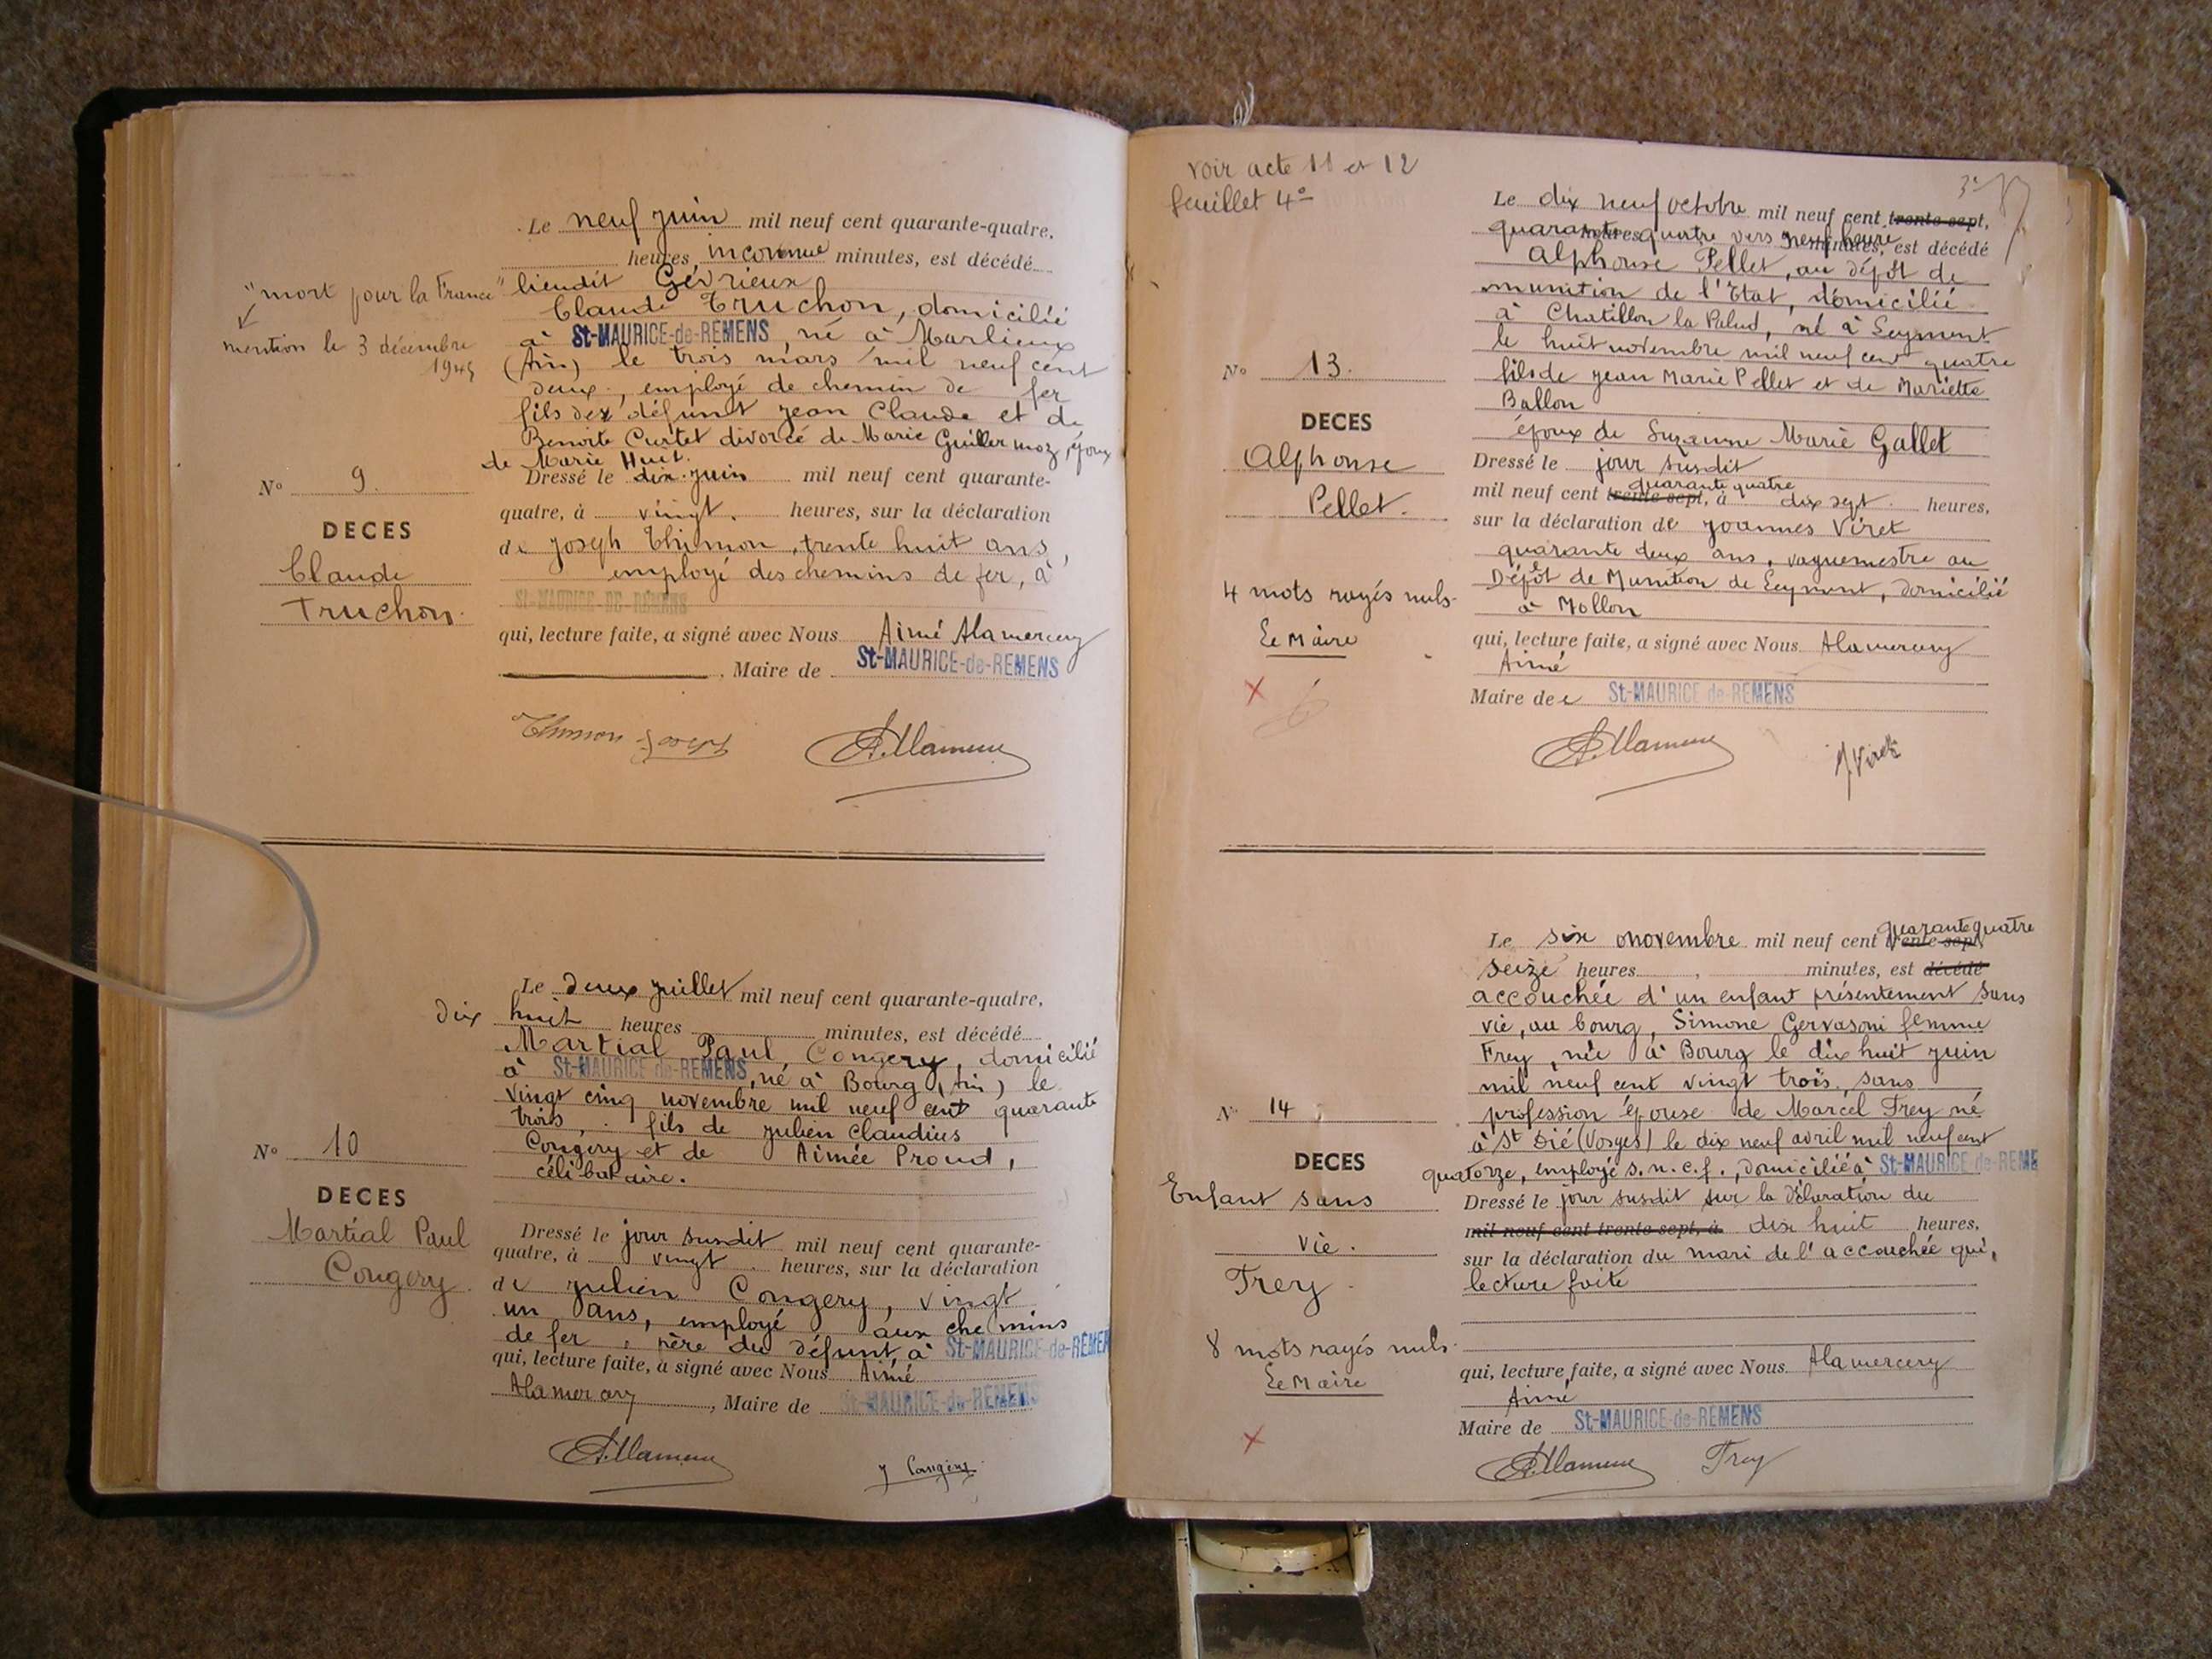 Le neuf juin mil neuf cent quarante-quatre,
heures inconnue minutes, est décédé
"mort pour la France" lieudit Gévrieux
Claude Truchon, domicilié
à St-MAURICE-de-REMENS, né à Marlieux
mention le 3 décembre
1945
(Ain) le trois mars mil neuf cent
deux, employé de chemin de fer
fils de défunt Jean Claude et de
Benoite Curtet divorcé de Marie Guillermoz, époux
de Marie Huit.
Dressé le dix juin mil neuf cent quarante-
N° 9.
quatre, à vingt heures, sur la déclaration
DECES
de Joseph Thimon, trente huit ans,
Claude
employé des chemins de fer, à
Truchon.
ST-MAURICE-DE-RÉMENS
qui, lecture faite, a signé avec Nous Aimé Alamercery
, Maire de St-MAURICE-de-REMENS
Thimon Joseph
Le deux juillet mil neuf cent quarante-quatre,
dix huit heures minutes, est décédé
Martial Paul Congery, domicilié
à St-MAURICE-de-REMENS, né à Bourg (Ain) le
vingt cinq novembre mil neuf cent quarante
trois, fils de Julien Claudius
Congery et de Aimée Proud,
célibataire.
N° 10
DECES
Martial Paul
Congery
Dressé le jour susdit mil neuf cent quarante-
quatre, à vingt heures, sur la déclaration
de Julien Congery, vingt
un ans, employé aux chemins
de fer, père du défunt, à St-MAURICE-de-REMEN
qui, lecture faite, a signé avec Nous Aimé
Alamercery, Maire de St-MAURICE-de-REMENS
J Congery
voir acte 11 et 12
feuillet 4e
3e
Le dix neuf octobre mil neuf cent trente-sept,
quarante quatre vers neuf heure heures minutes, est décédé
Alphonse Pellet, au dépôt de
munition de l'Etat, domicilié
à Chatillon la Palud, né à Leyment
le huit novembre mil neuf cent quatre
fils de Jean Marie Pellet et de Mariette
Ballon
époux de Suzanne Marie Gallet
N° 13.
DECES
Alphonse
Pellet.
Dressé le jour susdit
quarante quatre
mil neuf cent trente-sept, à dix sept heures,
sur la déclaration de Joannes Viret
quarante deux ans, vaguemestre au
Dépôt de Munition de Leyment, domicilié
à Mollon
4 mots rayés nuls
Le Maire
qui, lecture faite, a signé avec Nous Alamercery
Aimé
Maire de St-MAURICE-de-REMENS
J Viret
Le six novembre mil neuf cent trente-sept quarante quatre
seize heures, minutes, est décédé
accouchée d'un enfant présentement sans
vie, au bourg, Simone Gervasoni femme
Frey, née à Bourg le dix huit juin
mil neuf cent vingt trois. sans
profession épouse de Marcel Frey né
à St Dié (Vosges) le dix neuf avril mil neuf cent
quatorze, employé s.n.c.f., domiciliée à St-MAURICE-de-REME
N° 14
DECES
Enfant sans
vie.
Frey
Dressé le jour susdit sur la déclaration du
mil neuf cent trente-sept, à dix huit heures,
sur la déclaration du mari de l'accouchée qui,
lecture faite
8 mots rayés nuls
Le Maire
qui, lecture faite, a signé avec Nous Alamercery
Aimé
Maire de St-MAURICE-de-REMENS
Frey